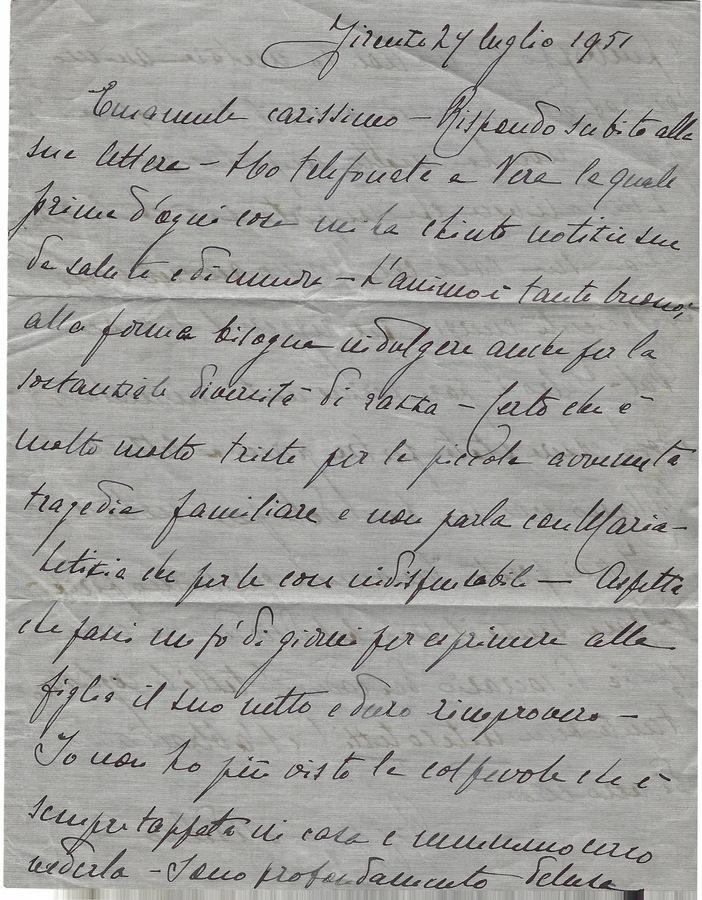 Firenze 27 luglio 1951
Emanuele carissimo – Rispondo subito alla
sua lettera – Ho telefonato a Vera la quale
prima d'ogni cosa mi ha chiesto notizie sue
da salute e di umore – L'animo è tanto buono;
alla forma bisogna indulgere anche per la
sostanziale diversità di razza – Certo che è
molto molto triste per la piccola avvenuta
tragedia familiare e non parla con Maria-
Letizia che per le cose indispensabili – Aspetta
che passi un po' di giorni per esprimere alla
figlia il suo netto e duro rimprovero –
Io non ho più visto la colpevole che è
sempre tappata in casa e nemmeno cerco
vederla – Sono profondamente delusa